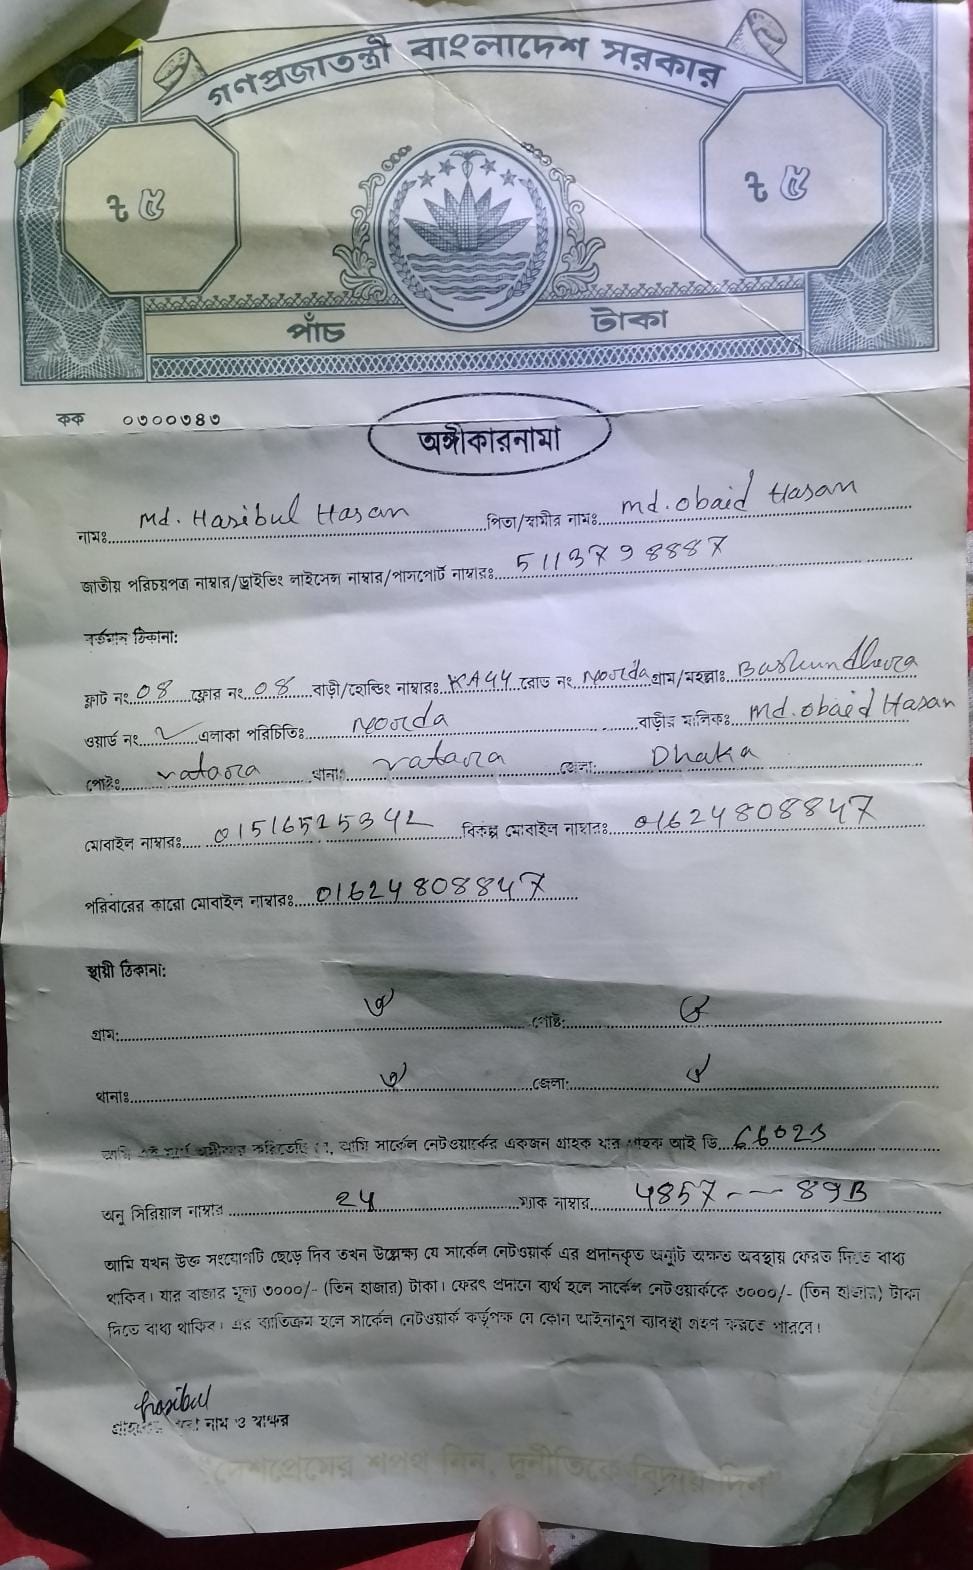 গণপ্রজাতন্ত্রী বাংলাদেশ সরকার
৳ ৫ ৳ ৫
পাঁচ টাকা
কক ০৩০০৩৪৩
অঙ্গীকারনামা
নামঃ Md. Hasibul Hasan পিতা/স্বামীর নামঃ md. obaid Hasan
জাতীয় পরিচয়পত্র নাম্বার/ড্রাইভিং লাইসেন্স নাম্বার/পাসপোর্ট নাম্বারঃ 5113798887
বর্তমান ঠিকানা:
ফ্লাট নং 08 ফ্লোর নং 08 বাড়ী/হোল্ডিং নাম্বারঃ রোড নং Noorda গ্রাম/মহল্লাঃ Bashundhara
ওয়ার্ড নং এলাকা পরিচিতিঃ Noorda বাড়ীর মালিকঃ md. obaid Hasan
পোষ্টঃ vatara থানাঃ vatara জেলা: Dhaka
মোবাইল নাম্বারঃ 01516525342 বিকল্প মোবাইল নাম্বারঃ 01624808847
পরিবারের কারো মোবাইল নাম্বারঃ 01624808847
স্থায়ী ঠিকানা:
গ্রাম: পোষ্ট:
থানাঃ জেলা:
আমি এই মর্মে অঙ্গীকার করিতেছি যে, আমি সার্কেল নেটওয়ার্কের একজন গ্রাহক যার গ্রাহক আই ডি
অনু সিরিয়াল নাম্বার 24 ম্যাক নাম্বার 4857 -- 89B
আমি যখন উক্ত সংযোগটি ছেড়ে দিব তখন উল্লেক্ষ্য যে সার্কেল নেটওয়ার্ক এর প্রদানকৃত অনুটি অক্ষত অবস্থায় ফেরত দিতে বাধ্য
থাকিব। যার বাজার মূল্য ৩০০০/- (তিন হাজার) টাকা। ফেরৎ প্রদানে ব্যর্থ হলে সার্কেল নেটওয়ার্ককে ৩০০০/- (তিন হাজার) টাকা
দিতে বাধ্য থাকিব। এর ব্যতিক্রম হলে সার্কেল নেটওয়ার্ক কর্তৃপক্ষ যে কোন আইনানুগ ব্যবস্থা গ্রহণ করতে পারবে।
hasibul
নাম ও স্বাক্ষর
"দেশপ্রেমের শপথ নিন, দুর্নীতিকে বিদায় দিন"